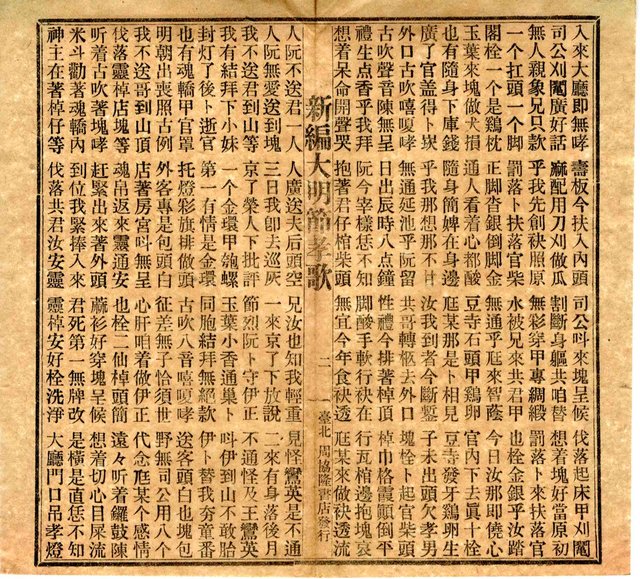 入來大廳即無哮 壽板今扶入內頭 司公呌來塊呈候 伐落起床甲刈䦰
司公刈䦰廣好等 麻配用刀刈做瓜 割斷身軀共咱替 想着塊好當原初
無人親象兄只款 乎我先創袂照原 無彩穿甲專綢緞 罰落卜來扶落官
一个扛頭一个脚 罰落卜扶落官柴 水被兄來共君甲 也栓金銀乎汝踏
閣栓一个是鷄枕 正脚沓銀倒脚金 無通乎尫來智蔭 今日汝那即僥心
玉葉來塊做犬損 通人看着心都酸 豆寺石頭甲鷄卵 官內下去眞十栓
也有隨身下庫錢 隨身簡婢在身邊 尫某那是卜相見 豆寺發牙鷄卵生
廣了官蓋得卜崁 乎我那想那不甘 汝我到者今斷錾 子未出頭欠孝男
外口古吹嘻嗄哮 無通延池乎阮留 共哥轉恹去外口 塊栓卜起官柴頭
古吹聲音陳無呈 日出辰時八點正 性禮今排著棹頂 棹巾格霞顛倒平
禮生点香乎我拜 阮今宰樣恁不知 脚酸手軟行袂在 行瓦棺邊抱塊哀
想着呆命開聲哭 抱著君仔棺柴頭 無宜今年食袂透 尫某來做袂透流
新編大明節孝歌 二 臺北周協隆書店發行
人阮不送君一人 人廣送夫后頭空 兄汝也知我輕重 見怪鸞英是不通
人阮無愛送到塊 三日我卽去巡灰 一來京了下放說 二來有身落後月
我不送君到山等 京了榮人下批評 節烈阮卜守伊正 不通怪及王鸞英
我有結拜下小妹 一个金環甲匏螺 玉葉小香通巢卜 呌伊到山不敢胎
封灯了後卜逝官 第一有情是金環 同胞結拜無絕款 伊卜替我夯童番
也有魂轎甲官罩 托燈彩旗排做頭 古吹八音嘻嗄哮 送客頭白也塊包
明朝出喪照古例 外客專是包頭白 征差無子恰須世 野無司公用八个
我不送哥到山頂 店著房宮呌無呈 心肝咱着做伊正 代念尫某个感情
伐落靈棹店塊等 魂帛返來靈通安 也栓二仙棹頭簡 遠々听着鑼鼓陳
听着古吹塊哮哮 赶緊出來著外頭 蔴衫好穿塊呈候 想着切心目屎流
米斗勸著魂轎內 到位我緊捧入來 君死第一無牌改 是橫是直恁不知
神主在著棹仔等 伐落共君汝安靈 靈棹安好栓洗淨 大廳門口吊孝燈